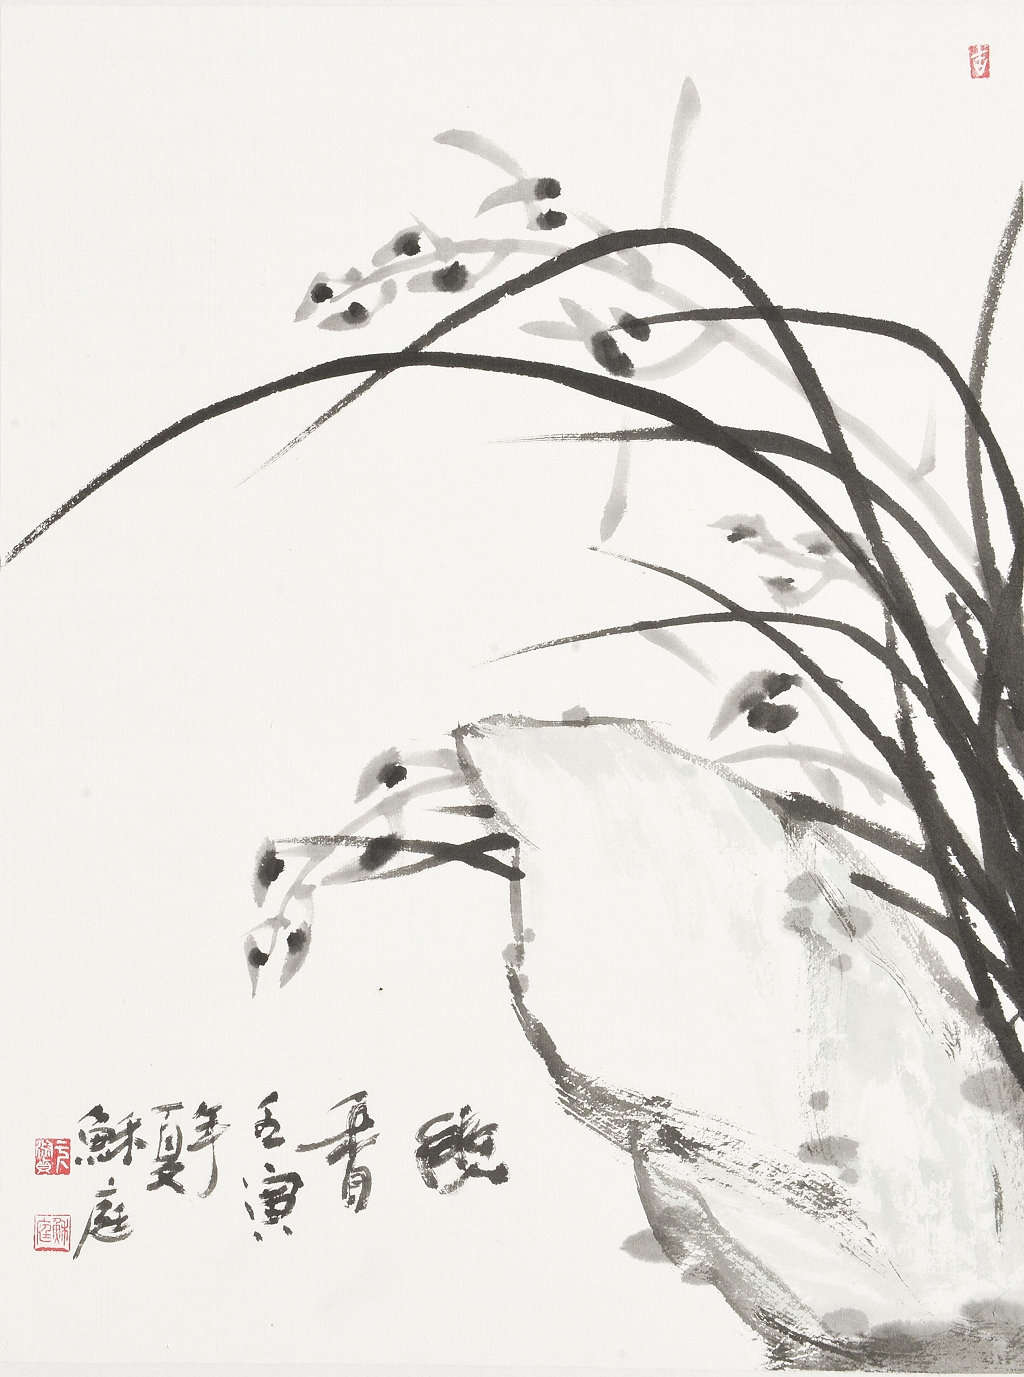 幽香
壬寅年夏
穌庭
穌庭